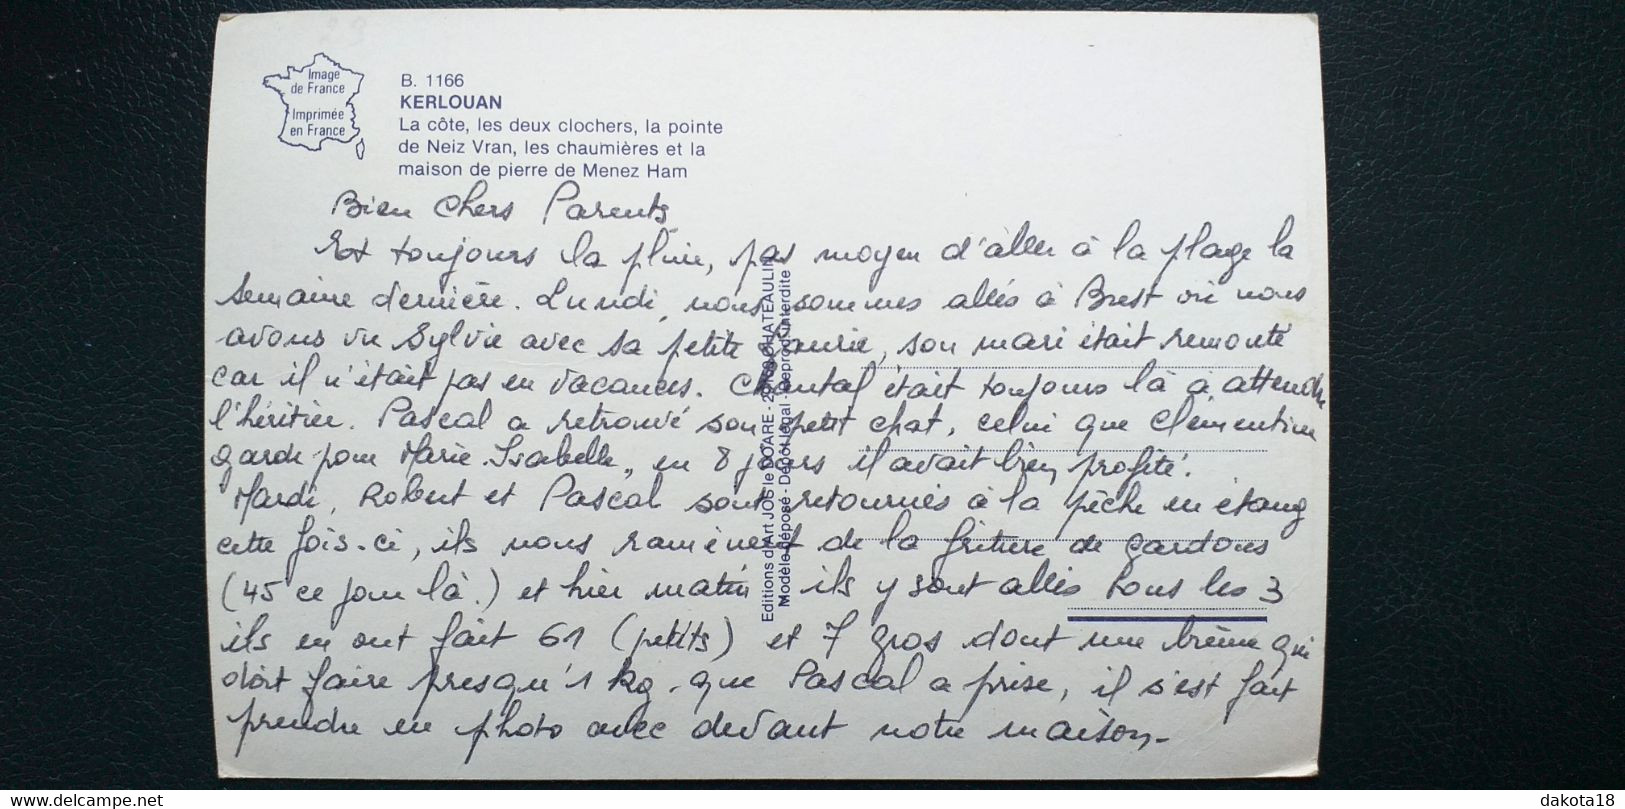 Image
de France
Imprimée
en France
B. 1166
KERLOUAN
La côte, les deux clochers, la pointe
de Neiz Vran, les chaumières et la
maison de pierre de Menez Ham
Bien Chers Parents
Et toujours la pluie, pas moyen d'aller à la plage la
semaine dernière. Lundi, nous sommes allés à Brest où nous
avons vu Sylvie avec sa petite Laurie, son mari était remonté
car il n'était pas en vacances. Chantal était toujours là à attendre
l'héritier. Pascal a retrouvé son petit chat, celui que Clémentine
garde pour Marie-Isabelle, en 8 jours il avait bien profité.
Mardi, Robert et Pascal sont retournés à la pêche en étang
cette fois-ci, ils nous ramènent de la friture de gardons
(45 ce jour là.) et hier matin ils y sont allés tous les 3
ils en ont fait 61 (petits) et 7 gros dont une brème qui
doit faire presqu'1 kg. que Pascal a prise, il s'est fait
prendre en photo avec devant notre maison.
Editions d'Art JOS le DOARE - CHATEAULIN
Modèle déposé - Dépôt légal - Reprod. interdite
dakota18